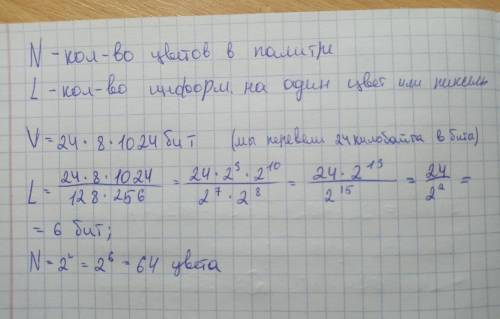 N - кол-во цветов в палитре
L - кол-во информ. на один цвет или пиксель
V = 24 · 8 · 1024 бит (мы перевели 24 килобайта в бита)
L = \frac{24 · 8 · 1024}{128 · 256} = \frac{24 · 2^3 · 2^{10}}{2^7 · 2^8} = \frac{24 · 2^{13}}{2^{15}} = \frac{24}{2^2} =
= 6 бит;
N = 2^L = 2^6 = 64 цвета